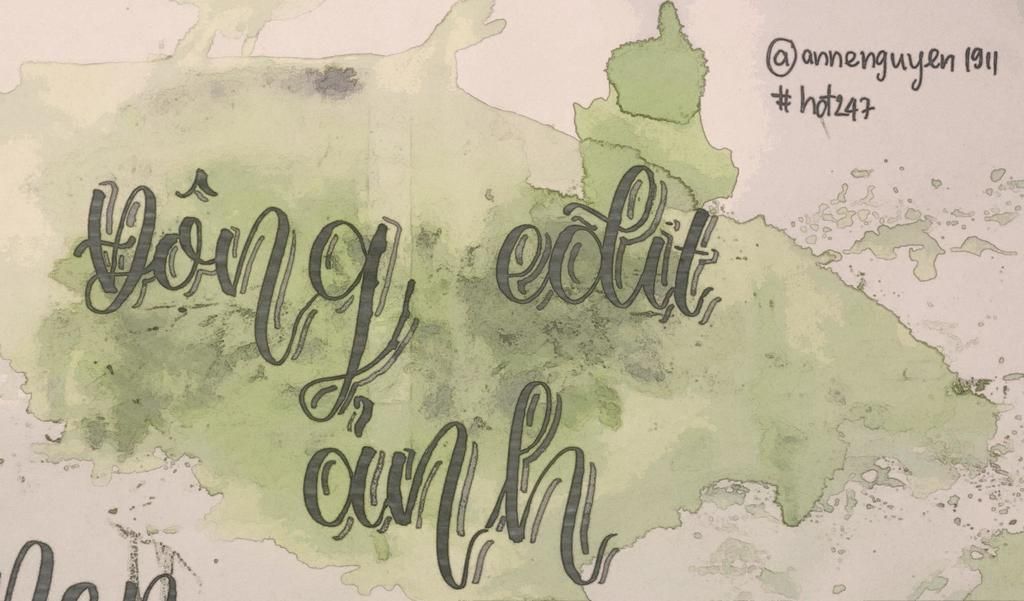 @annenguyen 1911
#hot247
Đông edit
ảnh